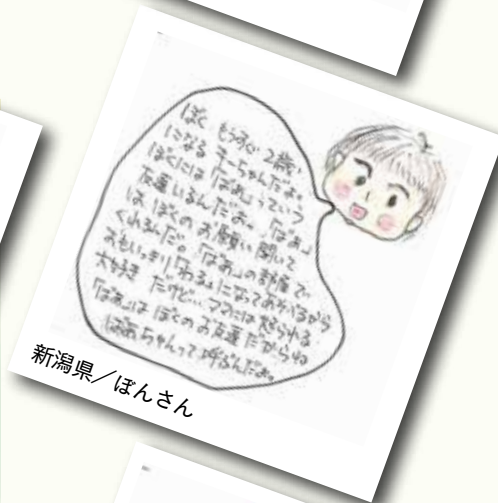 ぼく もうすぐ 2歳
になる チーちゃんだよ。
ぼくには 「なあ」っていう
友達いるんだよ。「なあ」
は ぼくの お願い 聞いて
くれるんだ。「なあ」の部屋で
おもいっきり「わる」になってあかるから
大好き だけど… ママには 怒られる
「なあ」は ぼくの お友達 だからね
ばあちゃんって 呼ぶんだよ。
新潟県／ぽんさん